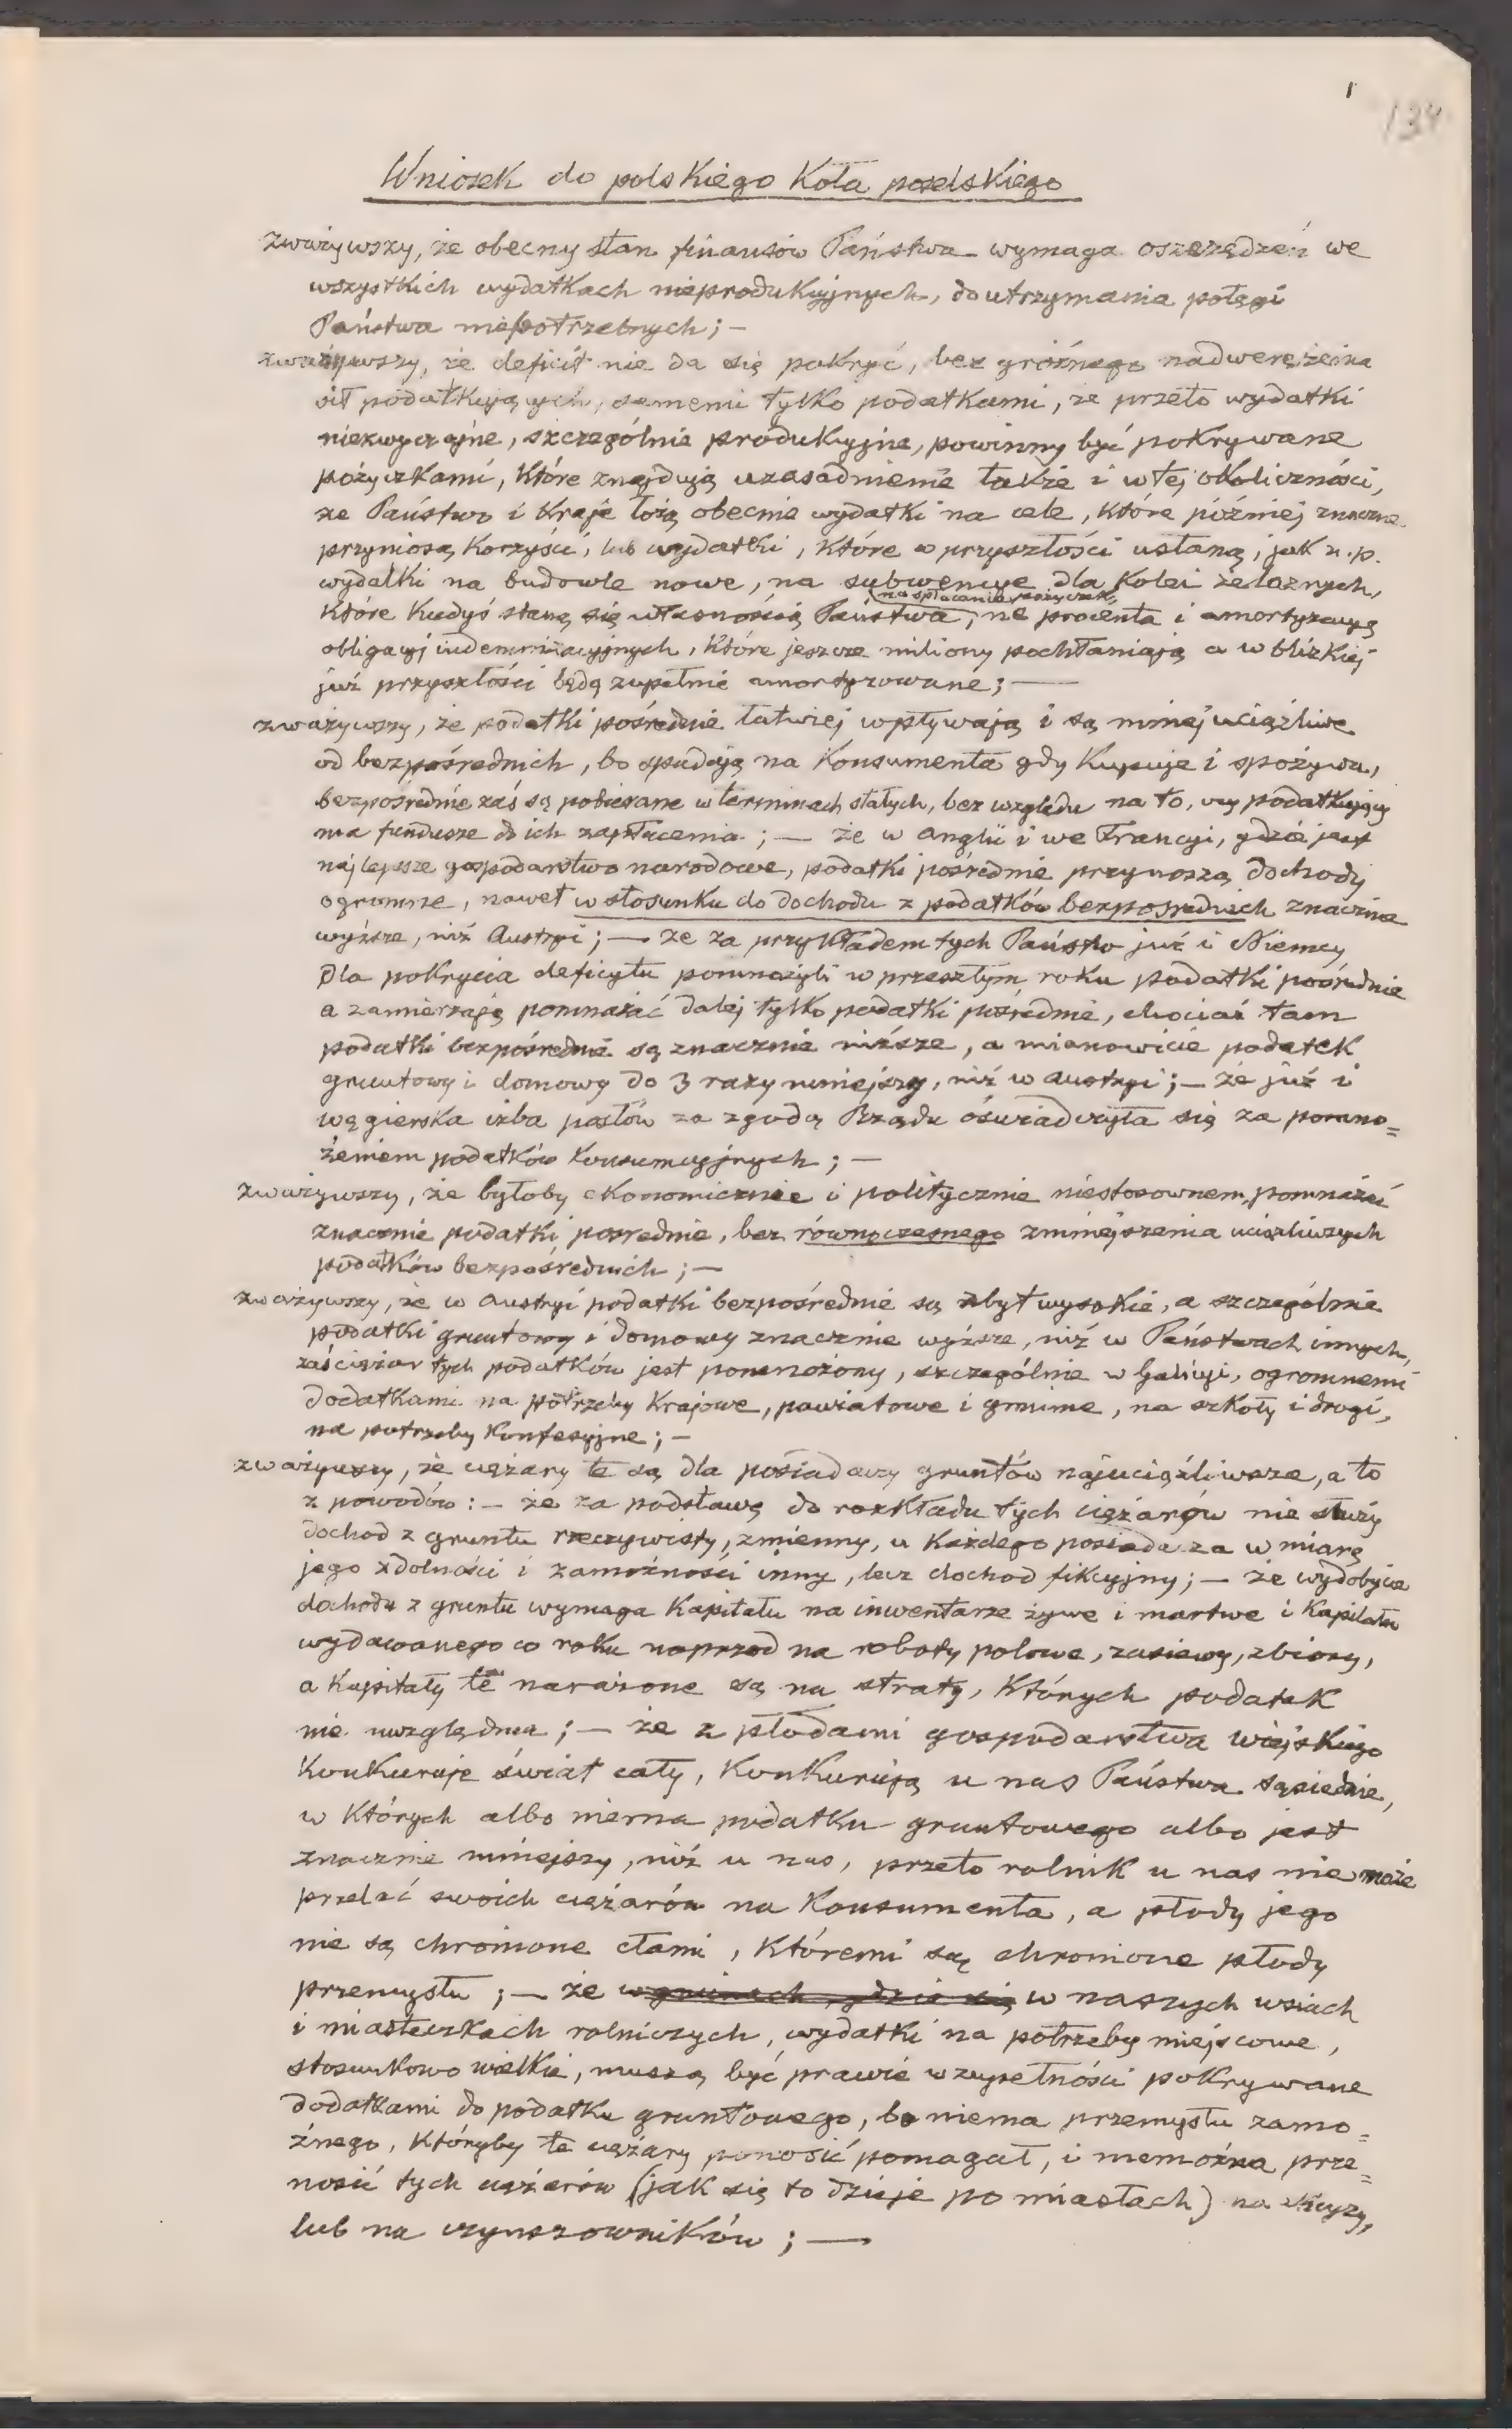 1
134
Wniosek do polskiego Koła poselskiego
zważywszy, że obecny stan finansów Państwa wymaga oszczędzeń we
wszystkich wydatkach nieprodukcyjnych, do utrzymania potęgi
Państwa niepotrzebnych; —
zważywszy, że deficit nie da się pokryć, bez groźnego nadwerężenia
sił podatkujących, samemi tylko podatkami, że przeto wydatki
niezwyczajne, szczególnie produkcyjne, powinny być pokrywane
pożyczkami, które znajdują uzasadnienie także i w tej okoliczności,
że Państwo i Kraje łożą obecnie wydatki na cele, które później znaczne
przyniosą korzyści, lub wydatki, które w przyszłości ustaną, jak n.p.
wydatki na budowle nowe, na subwencye dla Kolei żelaznych,
które kiedyś staną się własnością Państwa, na spłacanie pożyczek, na procenta i amortyzacyę
obligacyj indemnizacyjnych, które jeszcze miliony pochłaniają a w blizkiej
już przyszłości będą zupełnie amortyzowane; —
zważywszy, że podatki pośrednie łatwiej wpływają i są mniej uciążliwe
od bezpośrednich, bo spadają na Konsumenta gdy kupuje i spożywa,
bezpośrednie zaś są pobierane w terminach stałych, bez względu na to, czy podatkujący
ma fundusze do ich zapłacenia; — że w Anglii i we Francyi, gdzie jest
najlepsze gospodarstwo narodowe, podatki pośrednie przynoszą dochody
ogromne, nawet w stosunku do dochodu z podatków bezpośrednich znacznie
wyższe, niż Austryi; — że za przykładem tych Państw już i Niemcy
dla pokrycia deficytu pomnożyli w przeszłym roku podatki pośrednie
a zamierzają pomnażać dalej tylko podatki pośrednie, chociaż tam
podatki bezpośrednie są znacznie niższe, a mianowicie podatek
gruntowy i domowy do 3 razy mniejszy, niż w Austryi; — że już i
węgierska izba posłów za zgodą Rządu oświadczyła się za pomno=
żeniem podatków konsumcyjnych; —
zważywszy, że byłoby ekonomicznie i politycznie niestosownem, pomnażać
znacznie podatki pośrednie, bez równoczesnego zmniejszenia uciążliwszych
podatków bezpośrednich; —
zważywszy, że w Austryi podatki bezpośrednie są zbyt wysokie, a szczególnie
podatki gruntowy i domowy znacznie wyższe, niż w Państwach innych,
zaś ciężar tych podatków jest pomnożony, szczególnie w Galicyi, ogromnemi
dodatkami na potrzeby Krajowe, powiatowe i gminne, na szkoły i drogi,
na potrzeby Konfesyjne; —
zważywszy, że ciężary te są dla posiadaczy gruntów najuciążliwsze, a to
z powodów: — że za podstawę do rozkładu tych ciężarów nie służy
dochod z gruntu rzeczywisty, zmienny, u każdego posiadacza w miarę
jego zdolności i zamożności inny, lecz dochod fikcyjny; — że wydobycie
dochodu z gruntu wymaga Kapitału na inwentarze żywe i martwe i Kapitału
wydawanego co roku naprzod na roboty polowe, zasiewy, zbiory,
a Kapitały te narażone są na straty, których podatek
nie uwzględnia; — że z płodami gospodarstwa wiejskiego
Konkuruje świat cały, Konkurują u nas Państwa sąsiednie,
w których albo niema podatku gruntowego albo jest
znacznie mniejszy, niż u nas, przeto rolnik u nas nie może
przelać swoich ciężarów na Konsumenta, a płody jego
nie są chronione cłami, któremi są chronione płody
przemysłu; — że w gminach gdzie się w naszych wsiach
i miasteczkach rolniczych, wydatki na potrzeby miejscowe,
stosunkowo wielkie, muszą być prawie w zupełności pokrywane
dodatkami do podatku gruntowego, bo niema przemysłu zamo=
żnego, któryby te ciężary ponosić pomagał, i niemożna prze=
nosić tych ciężarów (jak się to dzieje po miastach) na
lub na czynszowników; —